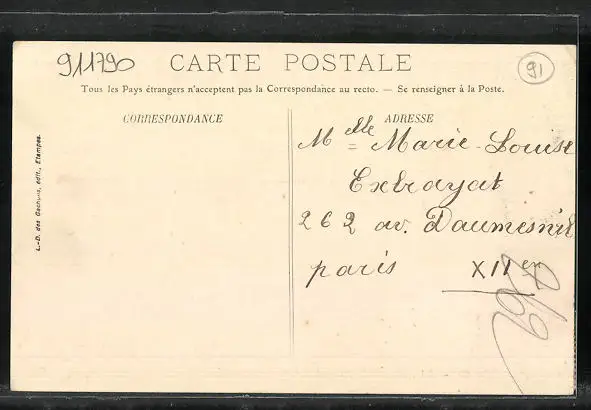 911790
CARTE POSTALE
91
Tous les Pays étrangers n'acceptent pas la Correspondance au recto. — Se renseigner à la Poste.
CORRESPONDANCE
ADRESSE
L.-D. des Gachons, édit., Etampes
Mlle Marie-Louise
Exbrayat
262 av. Daumesnil
paris XII en